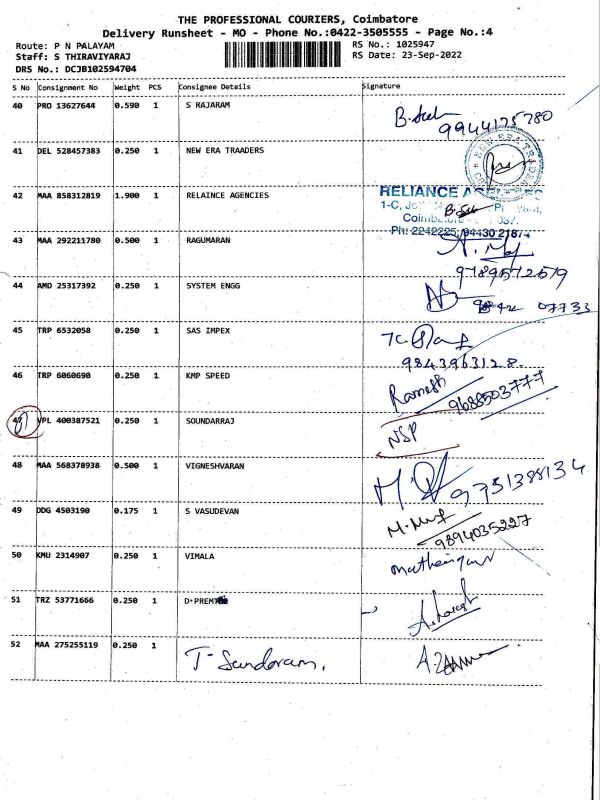 THE PROFESSIONAL COURIERS, Coimbatore
Delivery Runsheet - MO - Phone No.:0422-3505555 - Page No.:4
Route: P N PALAYAM RS No.: 1025947
Staff: S THIRAVIYARAJ RS Date: 23-Sep-2022
DRS No.: DCJB102594704
S No Consignment No Weight PCS Consignee Details Signature
40 PRO 13627644 0.590 1 S RAJARAM
9944125780
41 DEL 528457383 0.250 1 NEW ERA TRAADERS
NEW ERA TRADERS
42 MAA 858312819 1.900 1 RELAINCE AGENCIES
RELIANCE
1-C,
Ph: 2242225, 94430 21874
43 MAA 292211780 0.500 1 RAGUMARAN
9789572579
44 AMD 25317392 0.250 1 SYSTEM ENGG
07733
45 TRP 6532058 0.250 1 SAS IMPEX
9843963128
46 TRP 6060690 0.250 1 KMP SPEED
Ramesh 9688503777
VPL 400387521 0.250 1 SOUNDARRAJ
NSP
48 MAA 568378938 0.500 1 VIGNESHVARAN
9751388134
49 DDG 4503190 0.175 1 S VASUDEVAN
9894035227
50 KMU 2314907 0.250 1 VIMALA
51 TRZ 53771666 0.250 1
52 MAA 275255119 0.250 1 T- Sundaram.